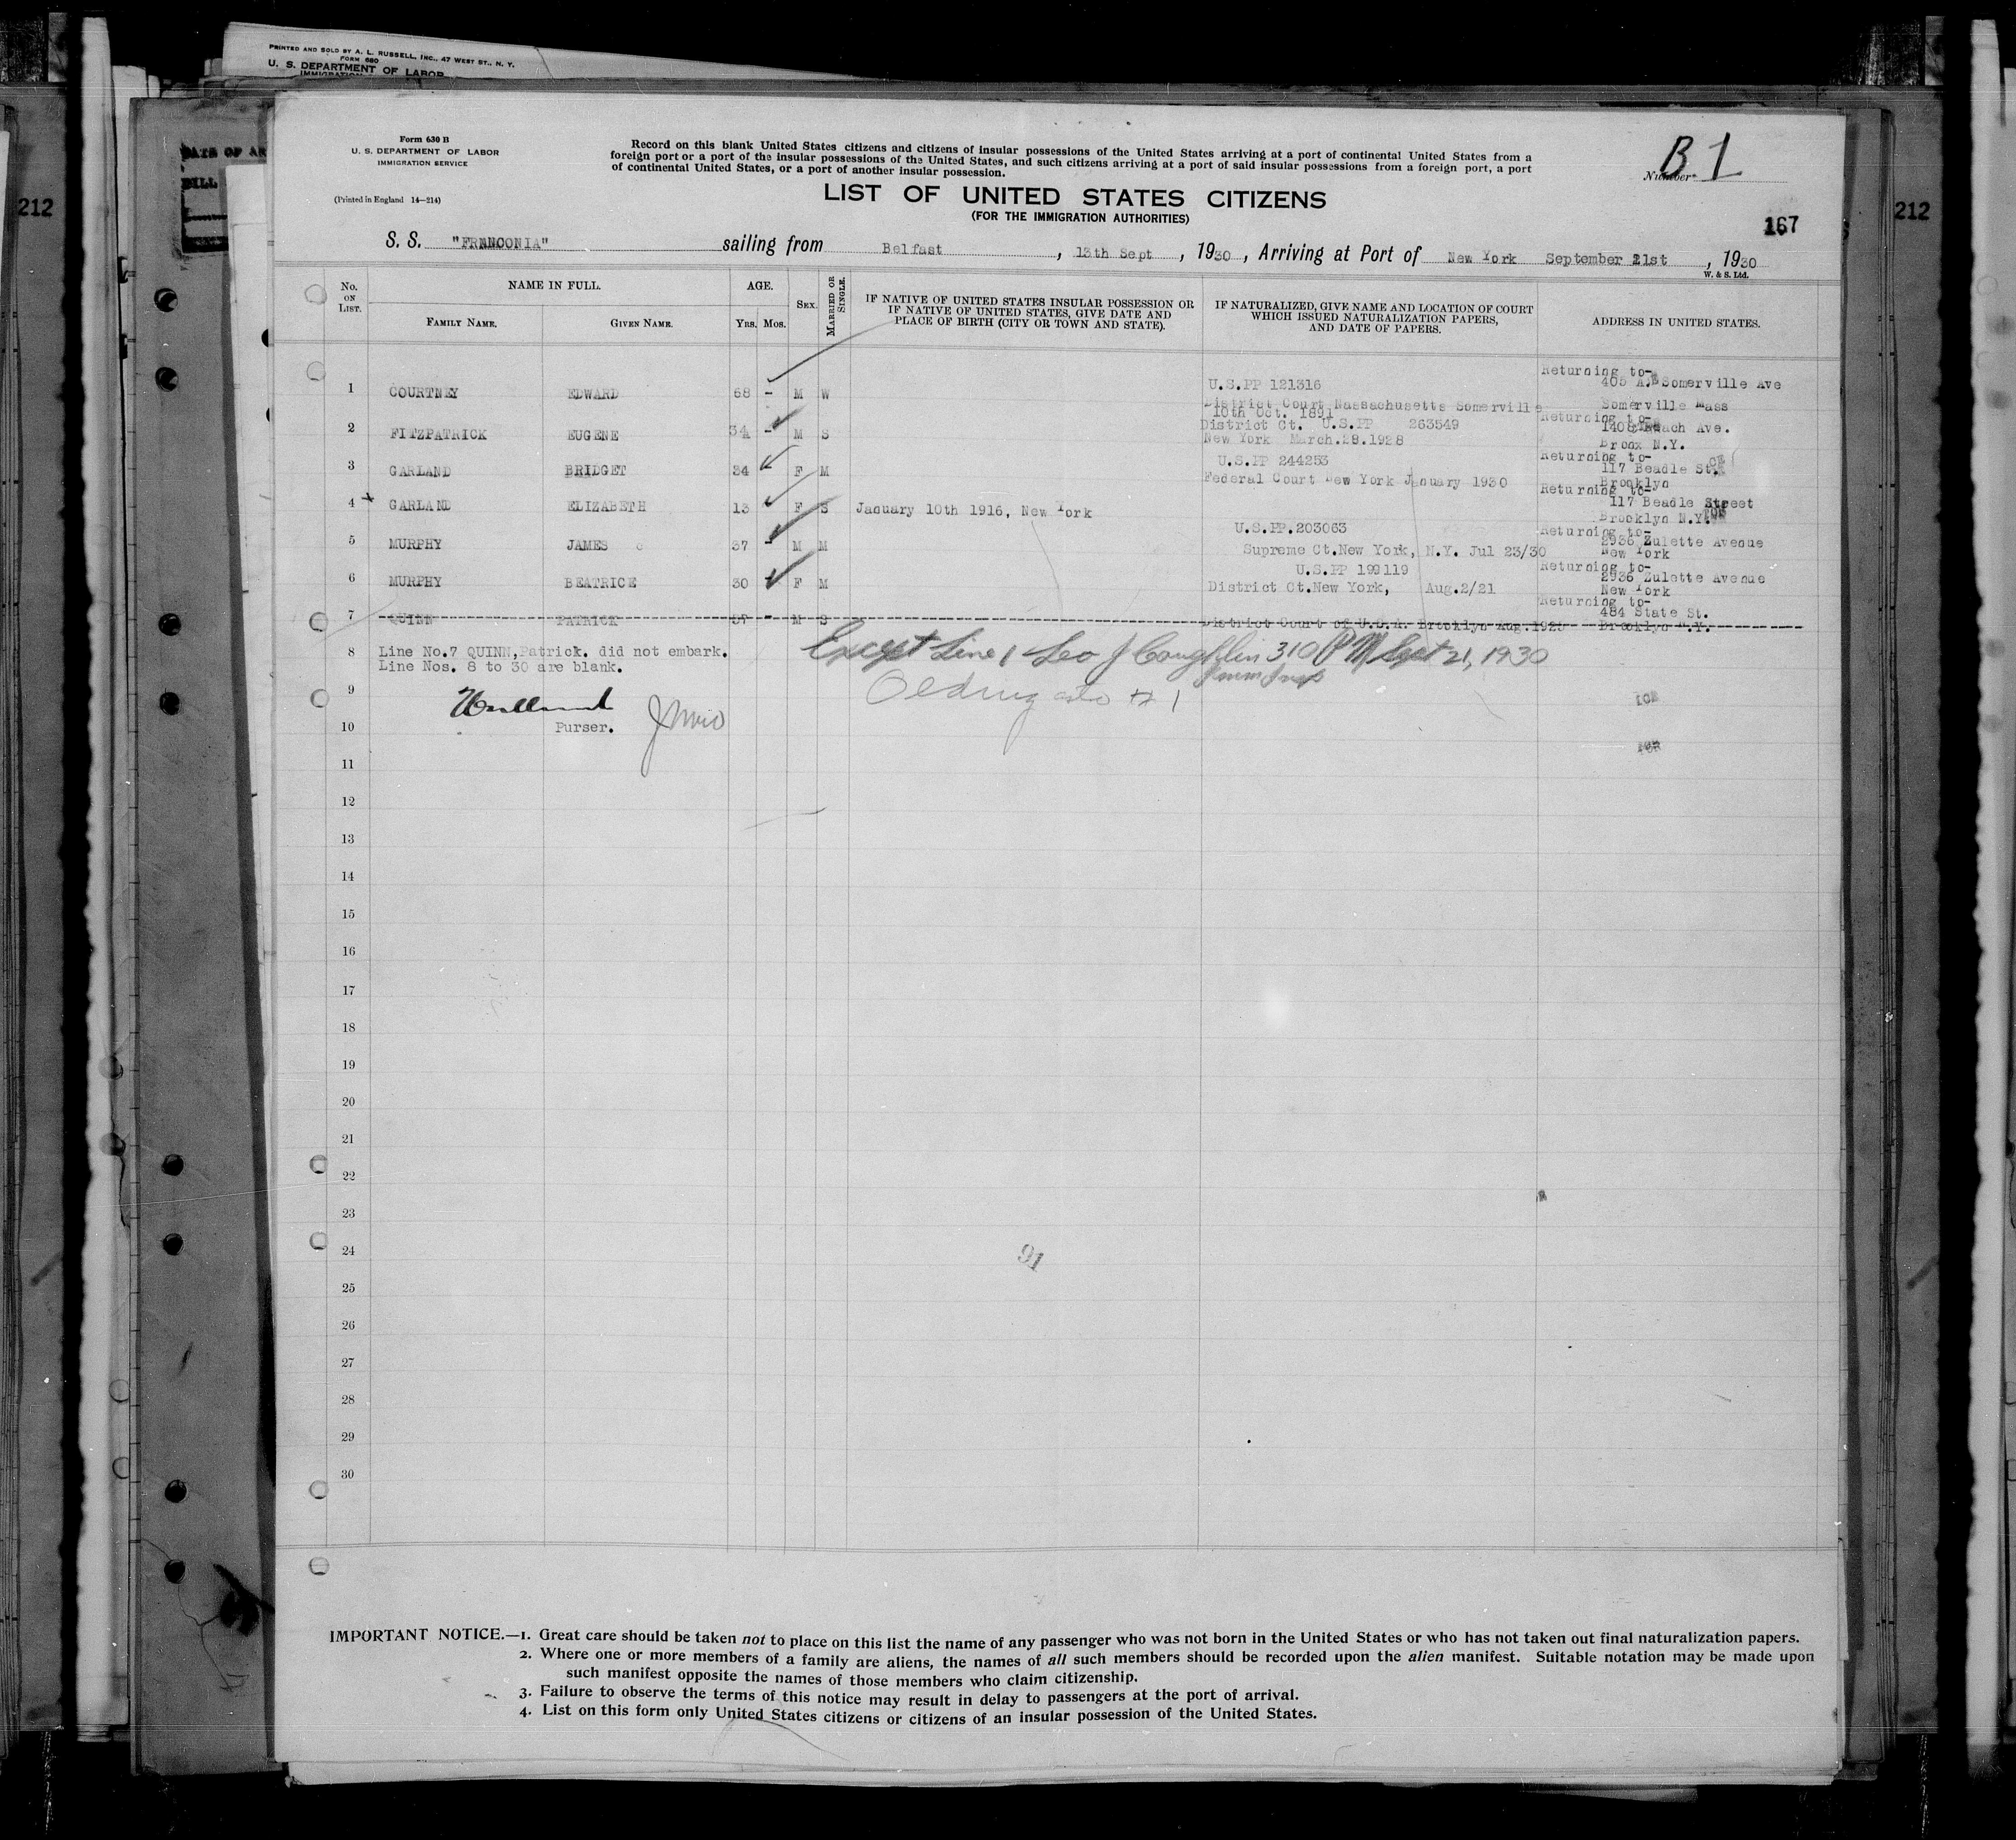 PRINTED AND SOLD BY A. L. RUSSELL, INC., 47 WEST ST., N. Y.
FORM 680
U. S. DEPARTMENT OF LABOR
212
212
Form 630 B
U. S. DEPARTMENT OF LABOR
IMMIGRATION SERVICE
(Printed in England 14—214)
Record on this blank United States citizens and citizens of insular possessions of the United States arriving at a port of continental United States from a
foreign port or a port of the insular possessions of the United States, and such citizens arriving at a port of said insular possessions from a foreign port, a port
of continental United States, or a port of another insular possession.
B 1
Number
LIST OF UNITED STATES CITIZENS
(FOR THE IMMIGRATION AUTHORITIES)
167
S. S. "FRANCONIA" sailing from Belfast, 13th Sept, 1930, Arriving at Port of New York September 21st, 1930
W. & S. Ltd.
No. ON LIST. NAME IN FULL. FAMILY NAME. GIVEN NAME. AGE. YRS. MOS. SEX. MARRIED OR SINGLE.
IF NATIVE OF UNITED STATES INSULAR POSSESSION OR
IF NATIVE OF UNITED STATES, GIVE DATE AND
PLACE OF BIRTH (CITY OR TOWN AND STATE).
IF NATURALIZED, GIVE NAME AND LOCATION OF COURT
WHICH ISSUED NATURALIZATION PAPERS,
AND DATE OF PAPERS.
ADDRESS IN UNITED STATES.
1 COURTNEY EDWARD 68 - M W
U.S.PP 121316
District Court Massachusetts Somerville
10th Oct. 1891
Returning to-
405 Somerville Ave
Somerville Mass
2 FITZPATRICK EUGENE 34 - M S
District Ct. U.S.PP 263549
New York March.28.1928
Returning to-
Ave.
Bronx N.Y.
3 GARLAND BRIDGET 34 F M
U.S.PP 244253
Federal Court New York January 1930
Returning to-
117 Beadle St.
Brooklyn
4 GARLAND ELIZABETH 13 F S January 10th 1916, New York
Returning to-
117 Beadle Street
Brooklyn N.Y.
5 MURPHY JAMES 37 - M M
U.S.PP.203063
Supreme Ct.New York, N.Y. Jul 23/30
Returning to-
2936 Zulette Avenue
New York
6 MURPHY BEATRICE 30 - F M
U.S.PP 199119
District Ct.New York, Aug.2/21
Returning to-
2936 Zulette Avenue
New York
7 QUINN PATRICK 37 - M S
District Court of U.S.A. Brooklyn Aug.1925
Returning to-
484 State St.
Brooklyn N.Y.
8 Line No.7 QUINN,Patrick. did not embark.
Line Nos. 8 to 30 are blank.
Except Line 1 Leo J Coughlin 310 PM Sept 21, 1930
Imm Insp
9
10 Purser.
11
12
13
14
15
16
17
18
19
20
21
22
23
24
91
25
26
27
28
29
30
IMPORTANT NOTICE.—1. Great care should be taken not to place on this list the name of any passenger who was not born in the United States or who has not taken out final naturalization papers.
2. Where one or more members of a family are aliens, the names of all such members should be recorded upon the alien manifest. Suitable notation may be made upon
such manifest opposite the names of those members who claim citizenship.
3. Failure to observe the terms of this notice may result in delay to passengers at the port of arrival.
4. List on this form only United States citizens or citizens of an insular possession of the United States.